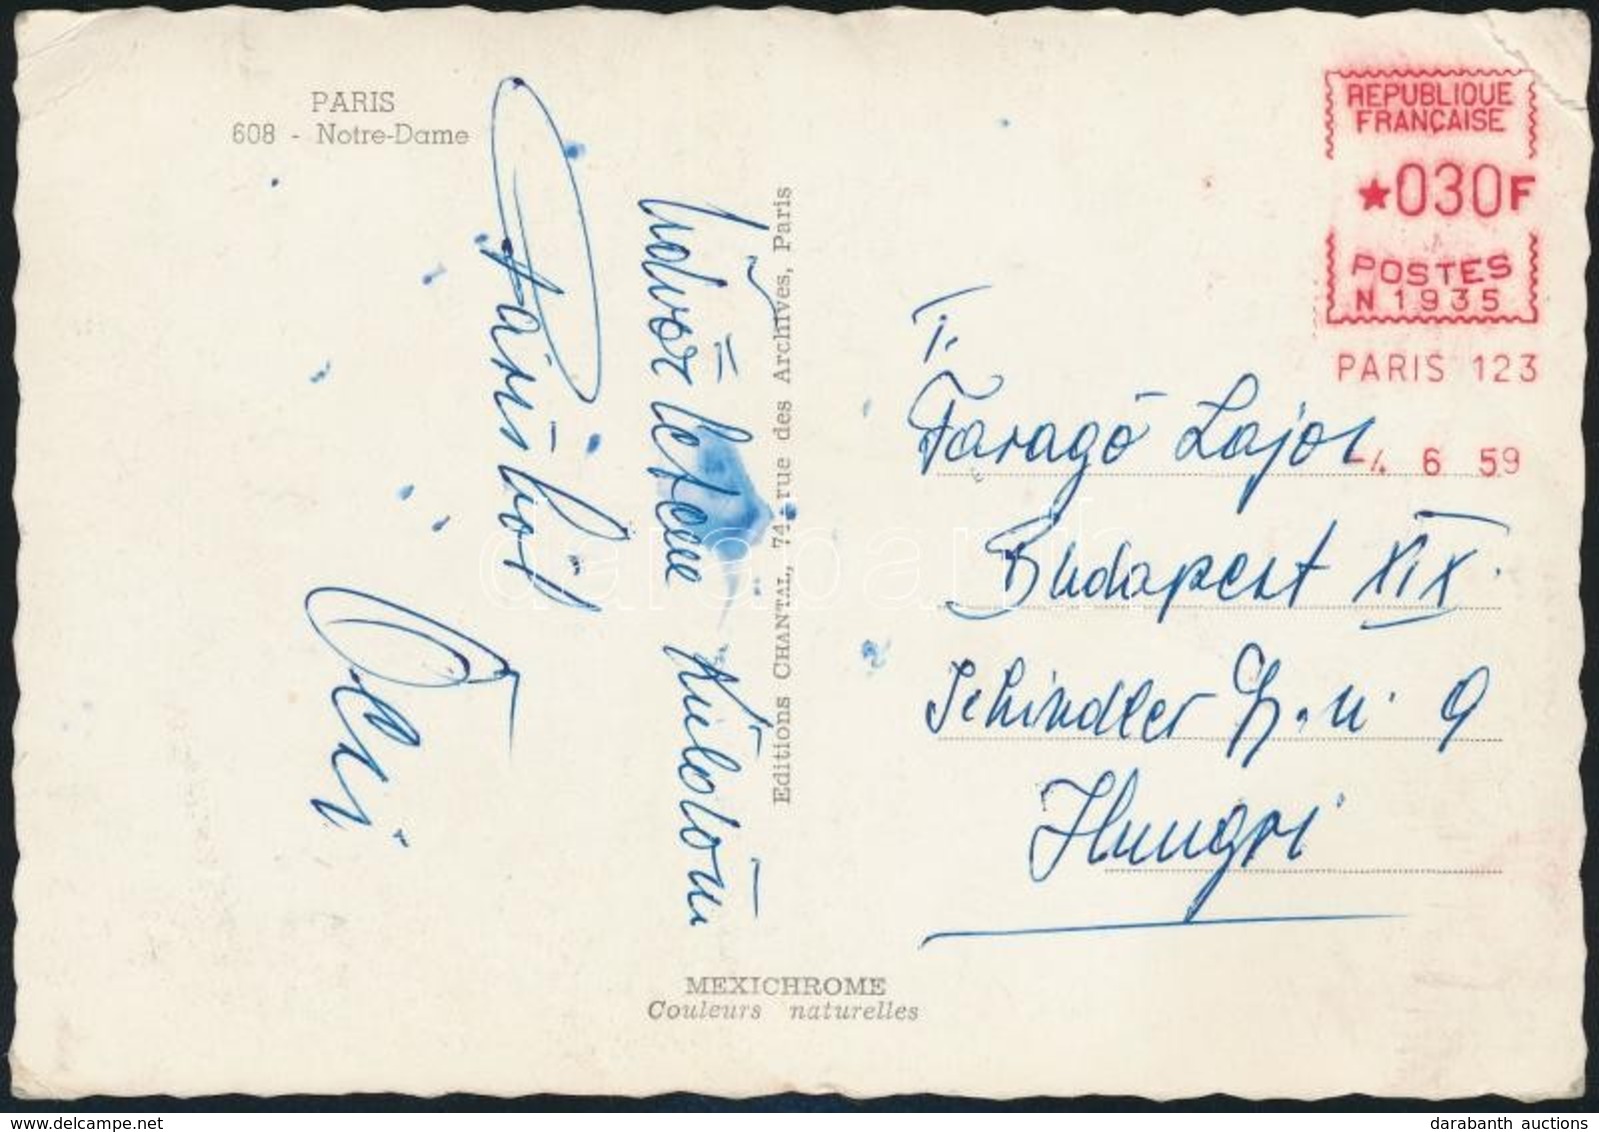 PARIS
608 - Notre-Dame
Üdvözletem küldöm
Párisból
Editions CHANTAL, 74, rue des Archives, Paris
REPUBLIQUE
FRANÇAISE
★030F
POSTES
N 1935
PARIS 123
-4 6 59
T.
Faragó Lajos
Budapest XIX.
Schindler Gy. u. 9
Hungri
MEXICHROME
Couleurs naturelles
darabanth
delcampe.net
darabanth auctions